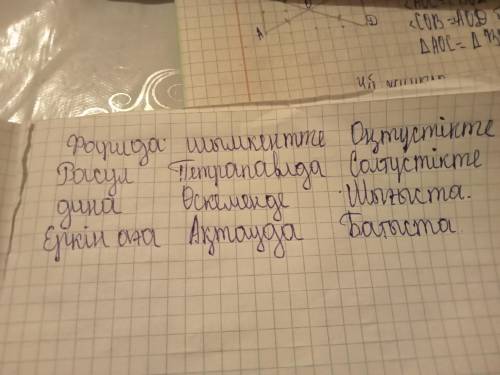 A B D
∠COB = ∠AOD
△AOC = △
Фарида шымкентте Оңтүстікте
Расул Петрапавлда Солтүстікте
дина Өскеменде Шығыста.
Еркін аға Ақтауда Батыста.